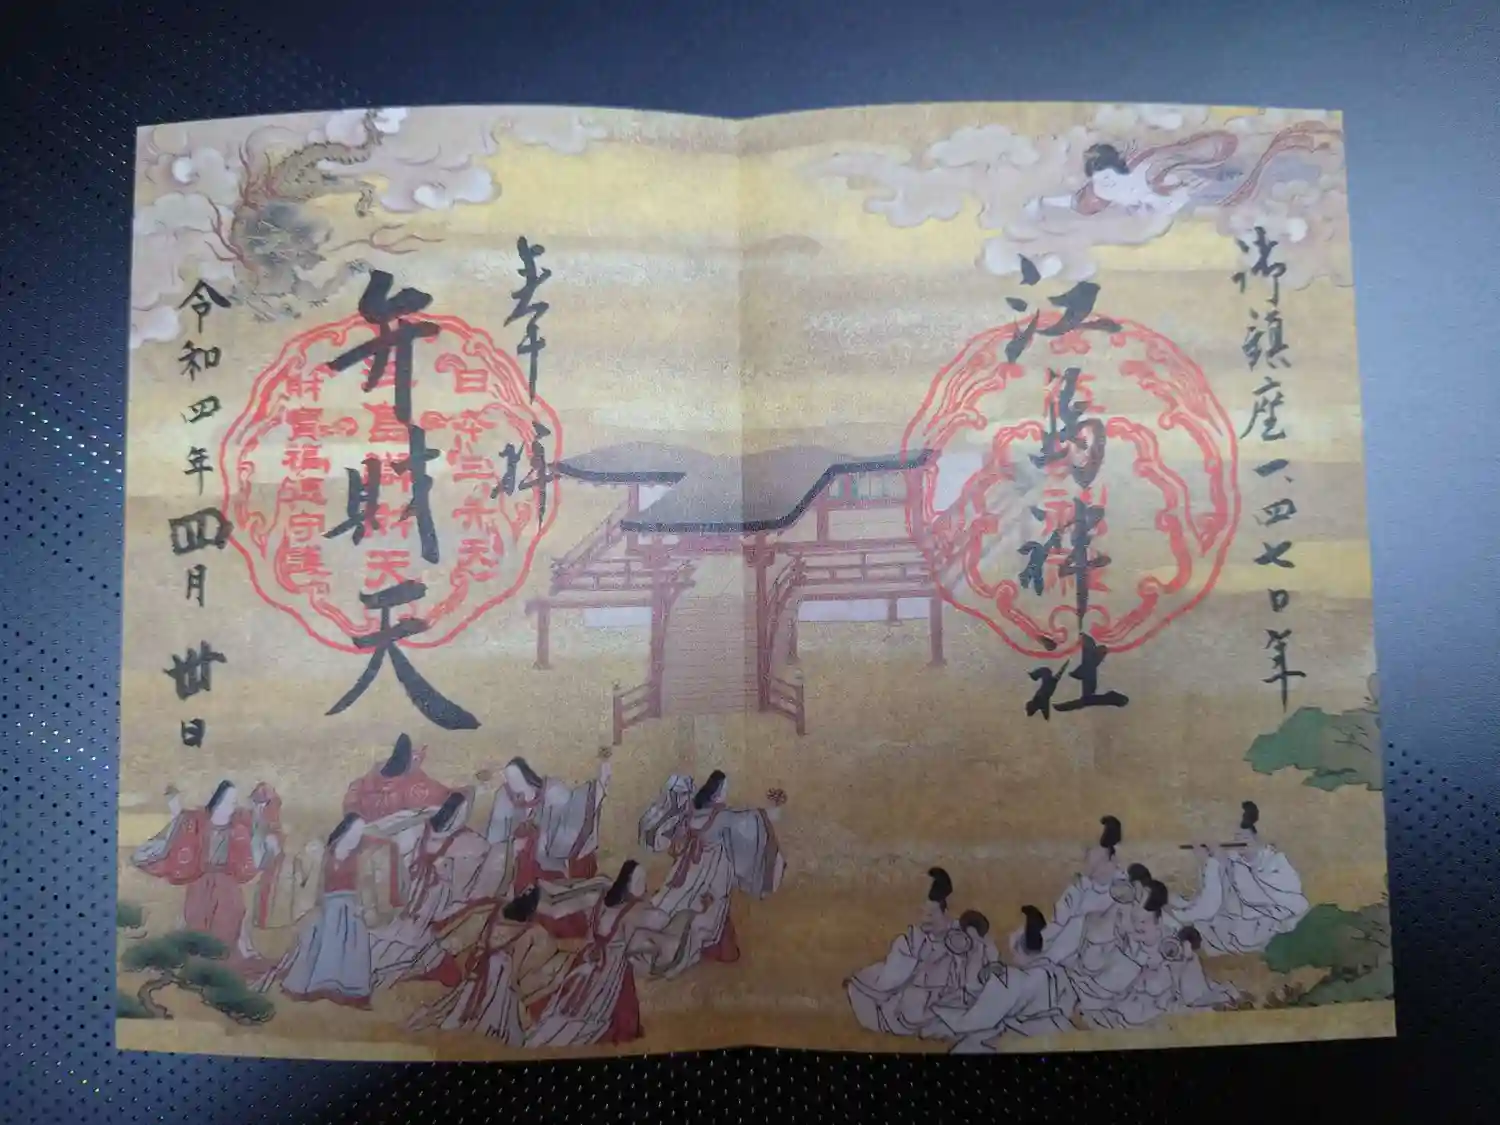 御鎮座一、四七〇年
江島神社
奉拝
弁財天
令和四年四月卅日
日本三大弁天
江島弁財天
財宝福徳守護